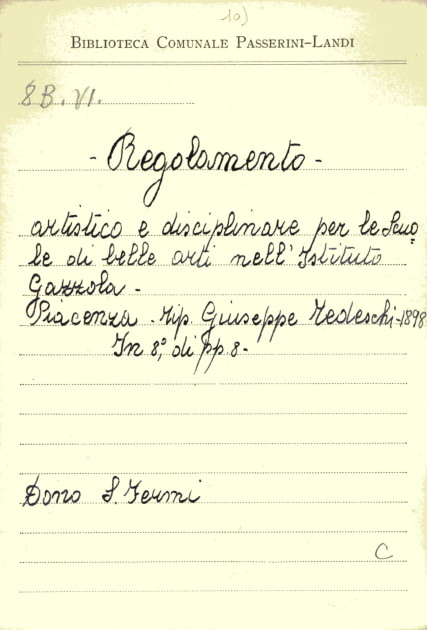 10)
BIBLIOTECA COMUNALE PASSERINI–LANDI
8B. VI.
- Regolamento -
artistico e disciplinare per le Scuo
le di belle arti nell'Istituto
Gazzola -
Piacenza - Tip. Giuseppe Tedeschi - 1898
In 8º, di pp. 8 -
Dono S. Fermi
C